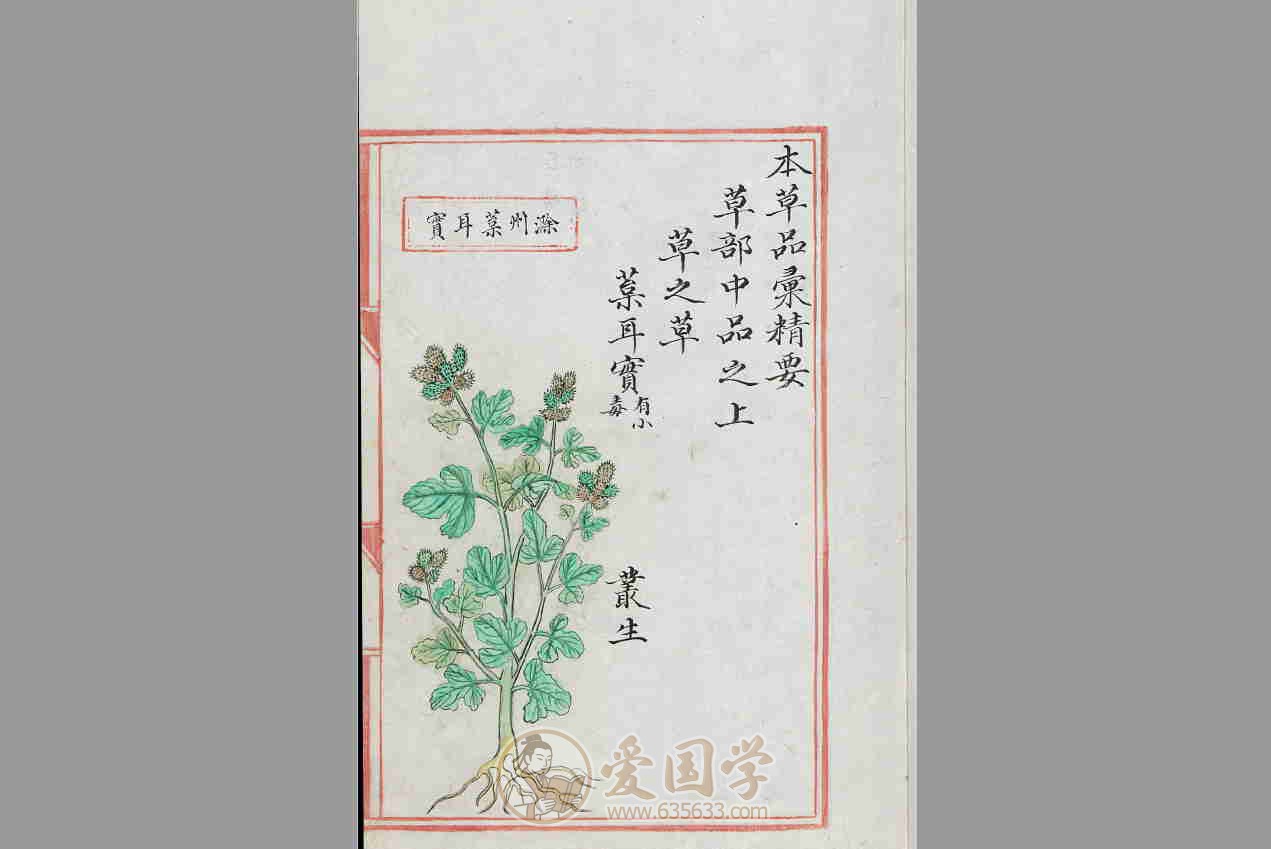 本草品彙精要
草部中品之上
草之草
葈耳實 有小毒 叢生
滁州葈耳實
爱国学
www.635633.com